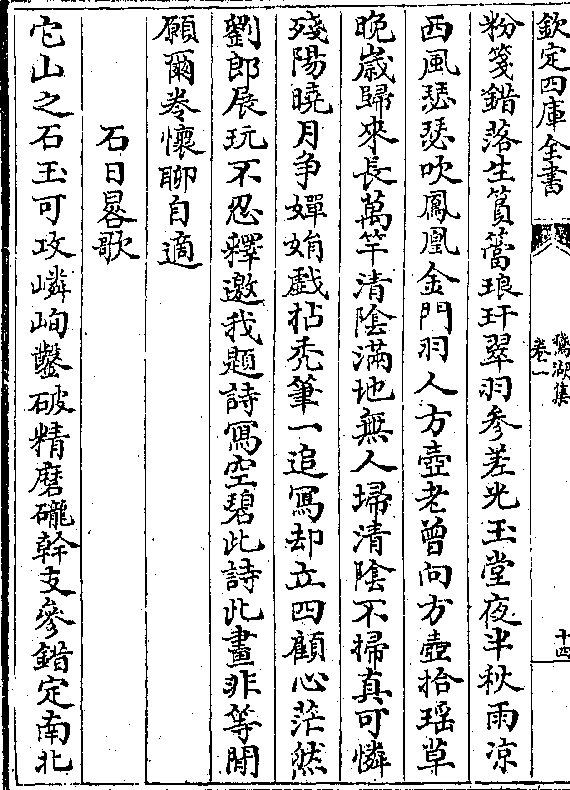 欽定四庫全書
鵝湖集
卷一
十四
粉箋錯落生篔簹琅玕翠羽參差光玉堂夜半秋雨凉
西風瑟瑟吹鳳凰金門羽人方壺老曾向方壺拾瑶草
晚歲歸來長萬竿清陰滿地無人埽清陰不掃真可憐
殘陽曉月争嬋娟戲拈秃筆一追寫却立四顧心茫然
劉郎展玩不忍釋邀我題詩寫空碧此詩此畫非等閒
願爾卷懷聊自適
石日晷歌
它山之石玉可攻嶙峋鑿破精磨礲幹支參錯定南北